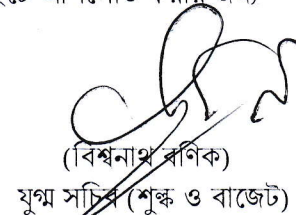 (বিশ্বনাথ বণিক)
যুগ্ম সচিব (শুল্ক ও বাজেট)